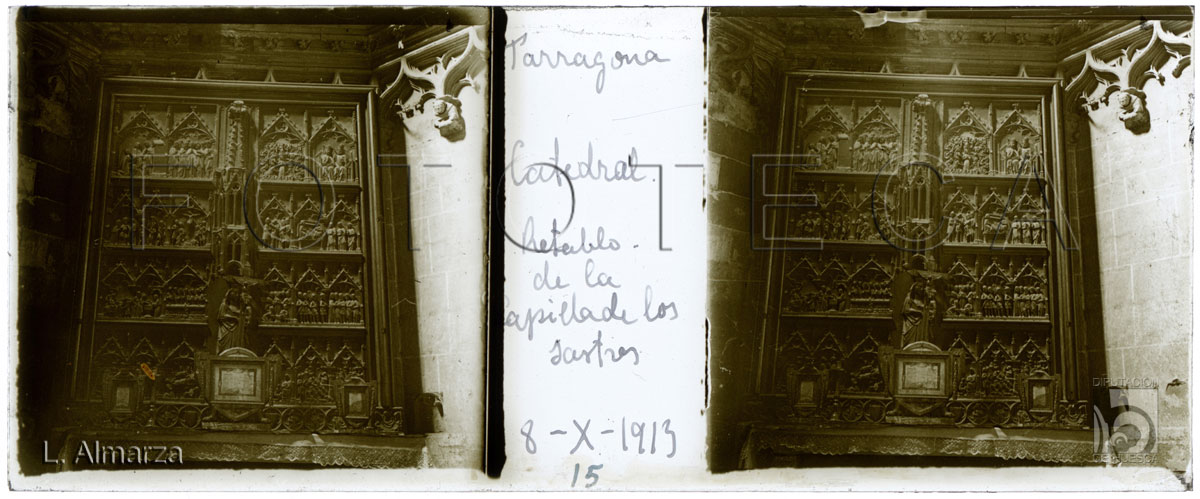 Tarragona
Catedral.
Retablo.
de la
Capilla de los
sastres
8-X-1913
15
FOTOTECA
FOTOTECA
L. Almarza
DIPUTACION
DE HUESCA